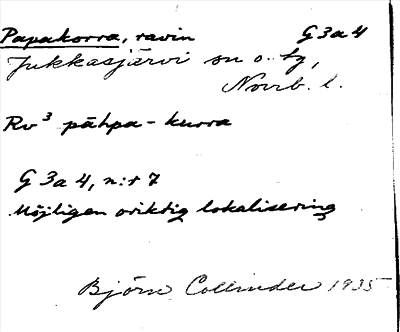 Papakorra, ravin G 3 a 4
Jukkasjärvi sn o. tg,
Norrb. l.
Rv³ pāhpa-kurra
G 3a 4, n:r 7
Möjligen oriktig lokalisering
Björn Collinder 1935